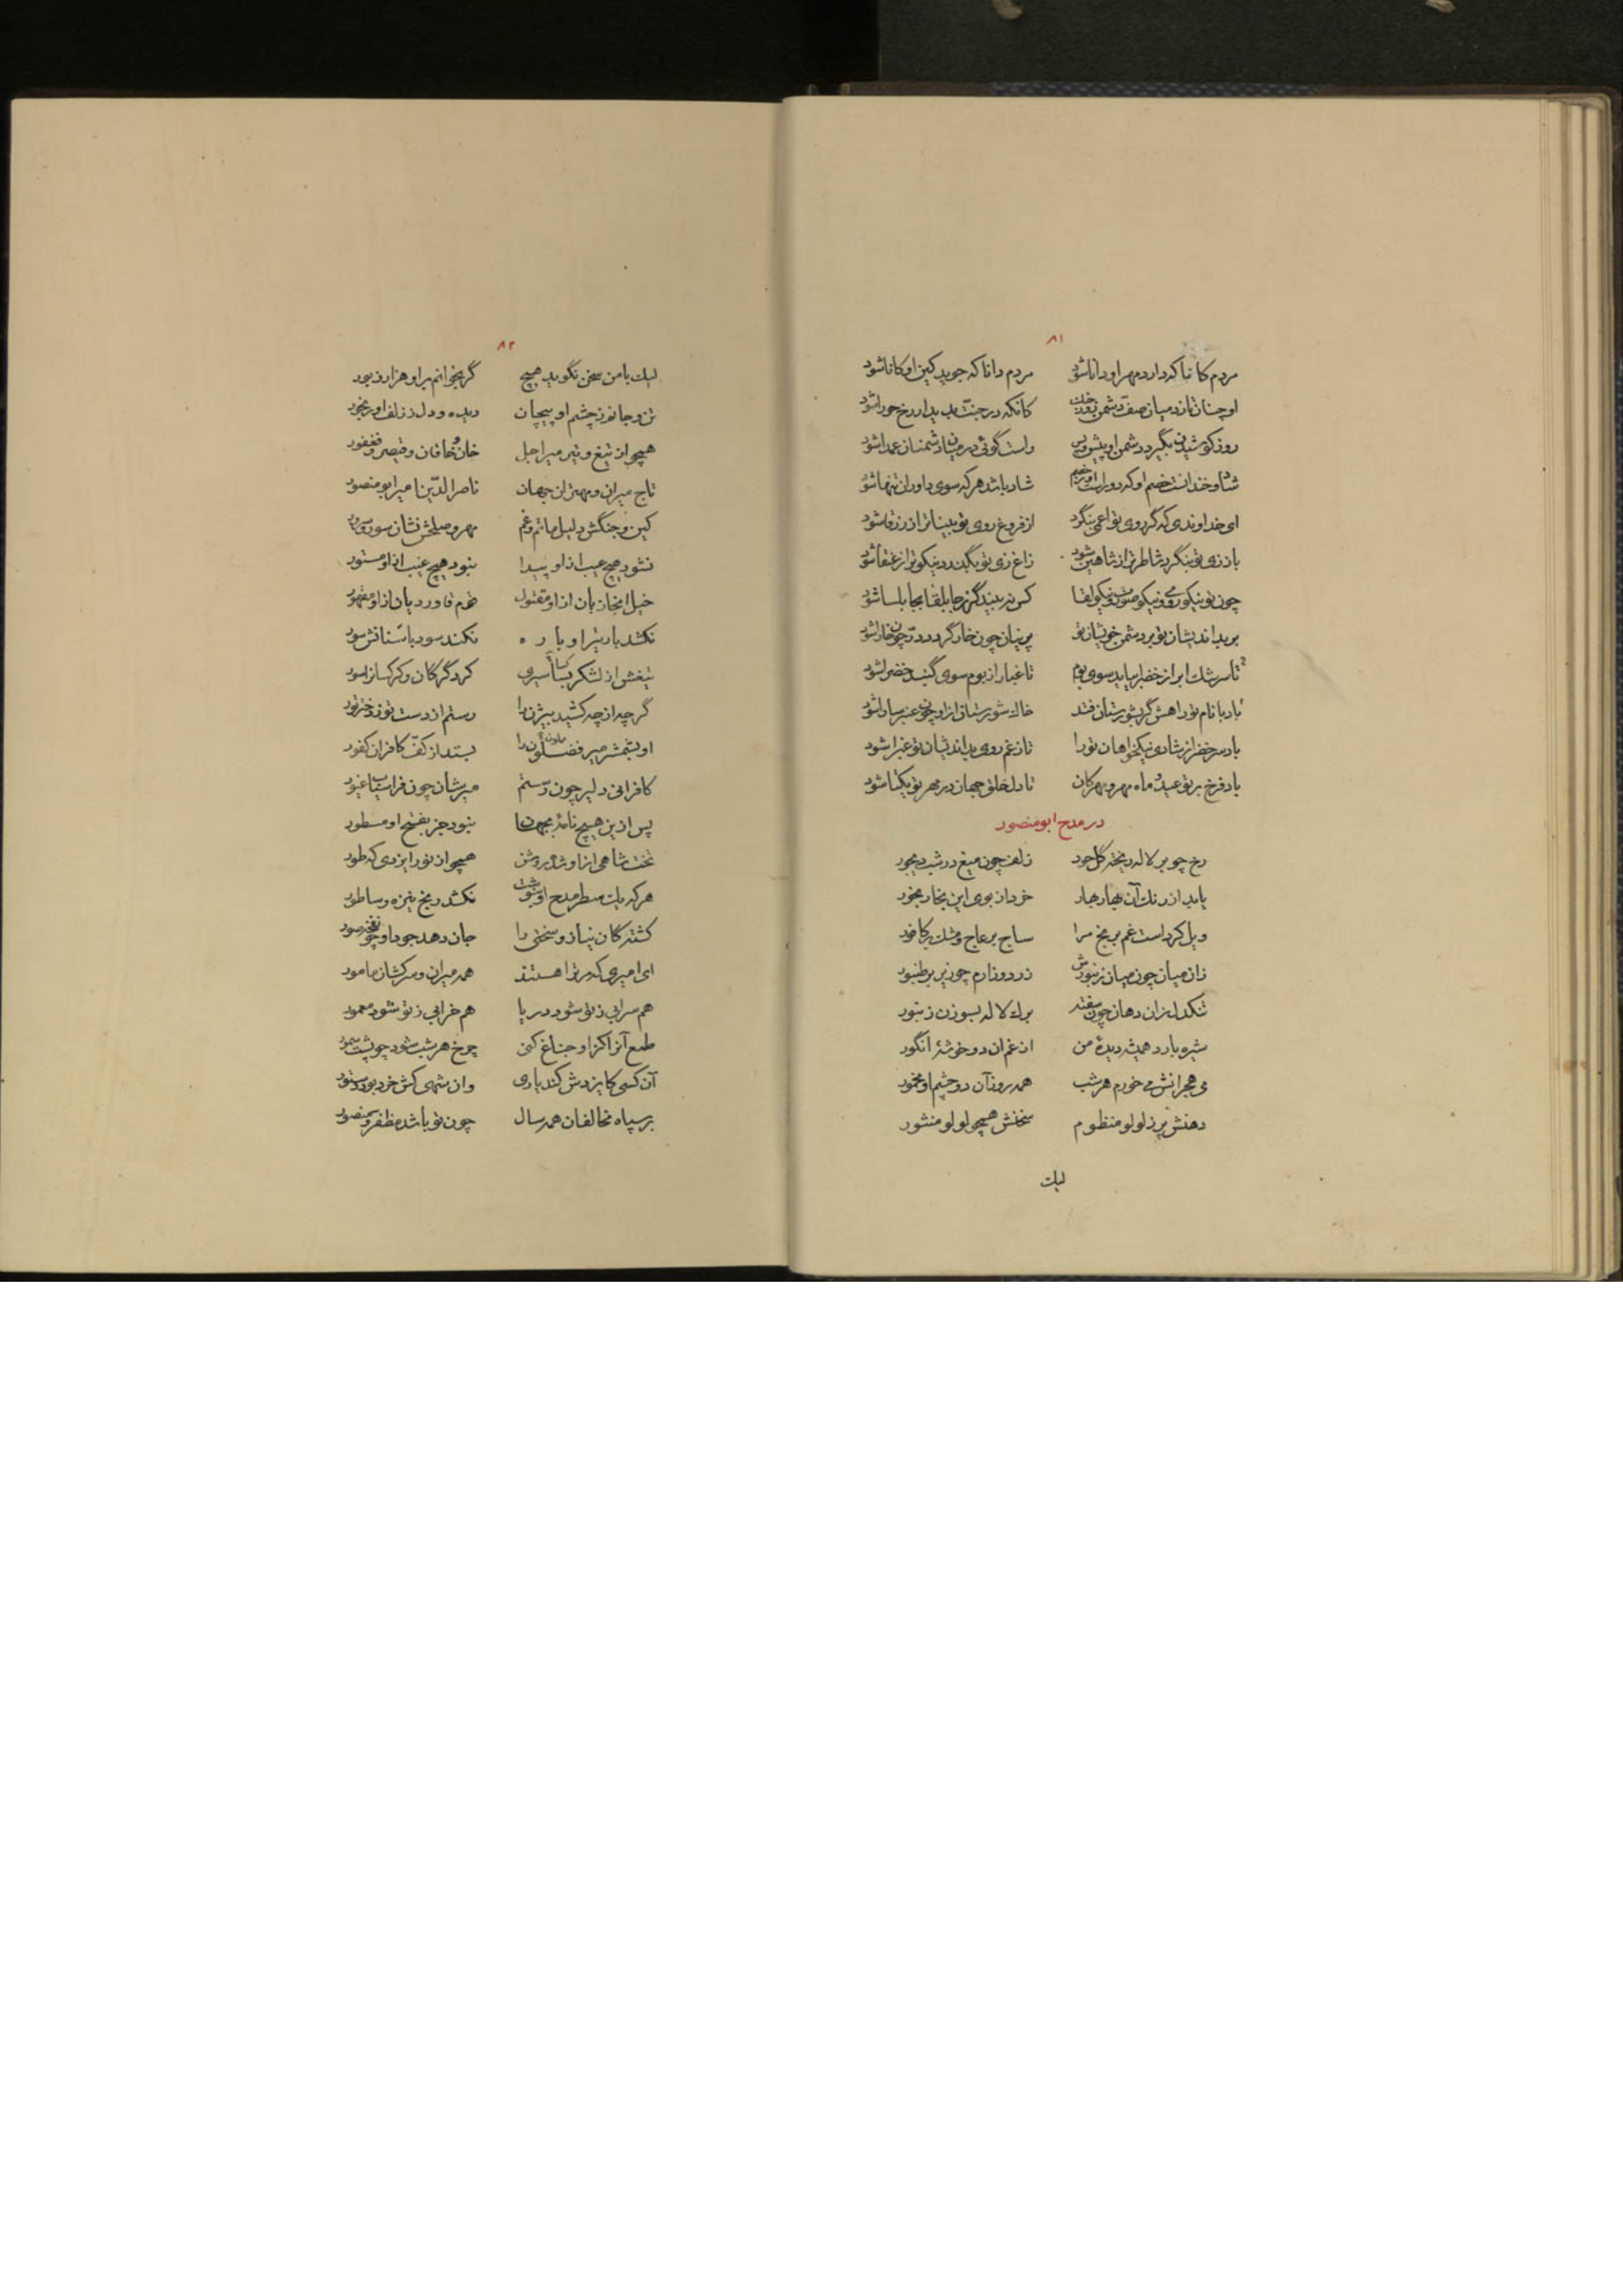 ۸۱
مردم کانا که دارد مهر او دانا شود مردم دانا که جوید کین او کانا شود
او چنان تازد میان صف دشمن روز جنگ کانکه در جنت بدیدار رخ حورا شود
روز کوشیدن بگیرد دشمن او پیش و پس راست گوئی در میان دشمنان عمدا شود
شاد و خندانست خصم او که دور است او ز خصم شاد باشد هر که سوی داوران تنها شود
ای خداوندی که گر روی تو اعمی بنگرد از فروغ روی تو بیناتر از زرقا شود
باز زی تو بنگرد شاطرتر از شاهین شود زاغ زی تو بگذرد نیکوتر از عنقا شود
چون تو نیکو روی و نیکو صورت و نیکو لقا کس نه بیند گر ز جابلقا بجابلسا شود
بر بداندیشان تو بر دشمن خویشان تو پرنیان چون خار گردد در چون خارا شود
تا سرشک ابر از خضرا بیاید سوی بوم تا غبار از بوم سوی گنبد خضرا شود
باد با نام تو راهش گر بشورستان فتد خاک شورستان از او چون عنبر سارا شود
باد سرخضر از شادی نیکخواهان تو را تا ز غم روی بداندیشان تو غبرا شود
باد فرخ بر تو عید و ماه مهر و مهرکان تا دل خلق جهان در مهر تو یکتا شود
در مدح ابو منصور
رخ چو بر لاله ریخته گل حور زلف چون میغ در شب دیجور
یابد از رنگ آن بهار بهار خرد از بوی این بخار بخور
ویل کرد است غم بریخ مرا ساج بر عاج و مشک بر کافور
زان میان چون میان زنبورش زرد و زارم چو زیر بر طنبور
تنگدل زان دهان چون سفته برک لاله بسوزن زنبور
شیره بارد همیشه دیدهٔ من از غم ان دو خوشهٔ انگور
می هجرانش می خورم هر شب همه روز آن دو چشم او مخمور
دهنش پر ز لولو منظوم سخنش همچو لولو منثور
لیک
۸۲
لیک با من سخن نگوید هیچ گر بخوانم بر او هزار زبور
تن و جانم ز چشم او پیچان دیده و دل ز زلف او رنجور
همچو از تیغ و تیر میر اجل خان و خاقان و قیصر و فغفور
تاج میران و مهتران جهان ناصرالدین امیر ابو منصور
کین و جنگش دلیل ماتم و غم مهر و صلحش نشان سور و سرور
نشود هیچ عیب از او پیدا نبود هیچ عیب از او مستور
خیل ابخازیان از او مقتول هم قاوردیان از او مقهور
نکشد بار تیر او باره نکند سود با سنانش سور
تیغش از لشکر بسا اسیری کرد گرگان و کرکسانرا سور
گرچه از چه کشید بیژن را رستم از دست تور و دختر تور
او بشمشر میر فضلون را بستد از کف کافران کفور
کافرانی دلیر چون رستم میرشان چون فراسیاب غیور
پس از این هیچ نامهٔ بجهان نبود جز بفتح او مسطور
تخت شاهی از او شد روشن همچو از نور ایزدی که طور
هر که یک سطر مدح او بنوشت نکشد رنج نیزه و ساطور
کشتگان نیاز و سختی را جان دهد جود او چو نفخهٔ صور
ای امیری که مر ترا هستند همه میران و سرکشان مامور
هم سرابی ز تو شود دریا هم خرابی ز تو شود معمور
طمع آنرا کز او جناغ کنی چرخ هر شب شود چو پشت سمور
آن کسی کایزدش کند یاری وان شهی کش خرد بود دستور
بر سپاه مخالفان همه سال چون تو باشد مظفر و منصور